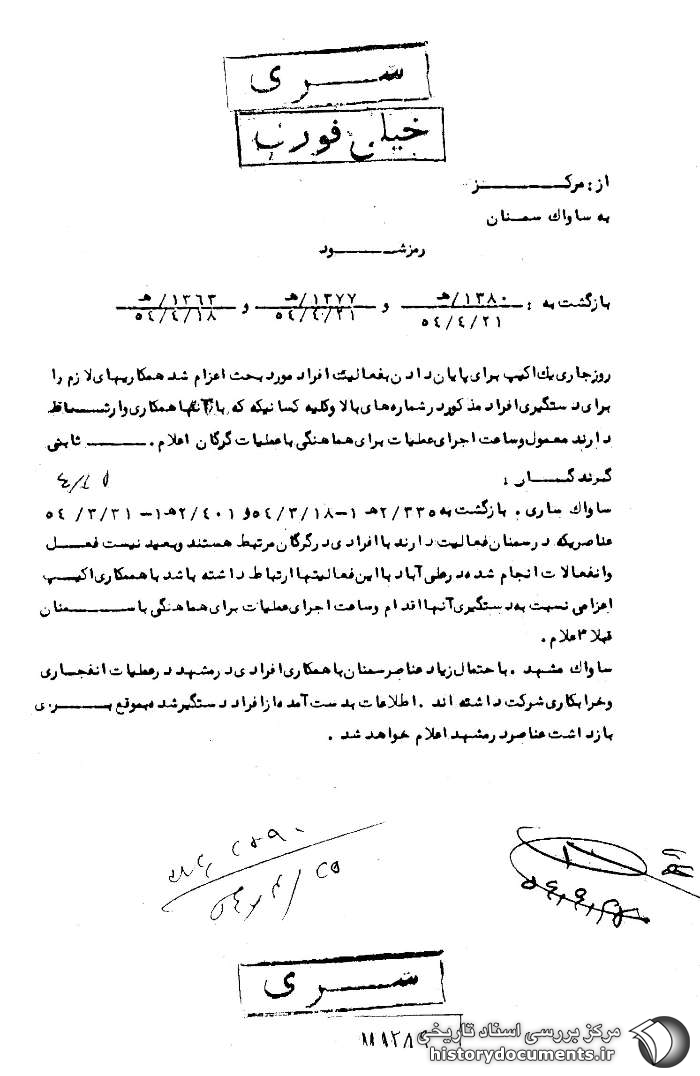 سری
خیلی فوری
از : مرکز
به ساواك سمنان
رمز شود
بازگشت به : ۱۳۸۰/هـ و ۱۳۷۷/هـ و ۱۳۶۳/هـ
۵٤/٤/۲۱ ۵٤/٤/۲۱ ۵٤/٤/۱۸
روز جاری یك اکیپ برای پایان دادن بفعالیت افراد مورد بحث اعزام شد همکاریهای لازم را
برای دستگیری افراد مذکور در شماره‌های بالا و کلیه کسانیکه که با آنها همکاری وارتباط
دارند معمول وساعت اجرای عملیات برای هماهنگی با عملیات گرگان اعلام . ثابتی
گیرندگان :
ساواك ساری . بازگشت به ۲/۳۳۵هـ ۱-۵٤/۳/۱۸ و ۲/٤۰۱هـ ۱-۵٤/۳/۳۱
عناصریکه در سمنان فعالیت دارند با افرادی در گرگان مرتبط هستند وبعید نیست فعل
وانفعالات انجام شده در علی آباد با این فعالیتها ارتباط داشته باشد با همکاری اکیپ
اعزامی نسبت به دستگیری آنها اقدام وساعت اجرای عملیات برای هماهنگی با سمنان
قبلا اعلام .
ساواك مشهد . با احتمال زیاد عناصر سمنان با همکاری افرادی در مشهد در عملیات انفجاری
وخرابکاری شرکت داشته اند . اطلاعات بدست آمده از افراد دستگیر شده بموقع برای
بازداشت عناصر در مشهد اعلام خواهد شد .
سری
مرکز بررسی اسناد تاریخی
historydocuments.ir